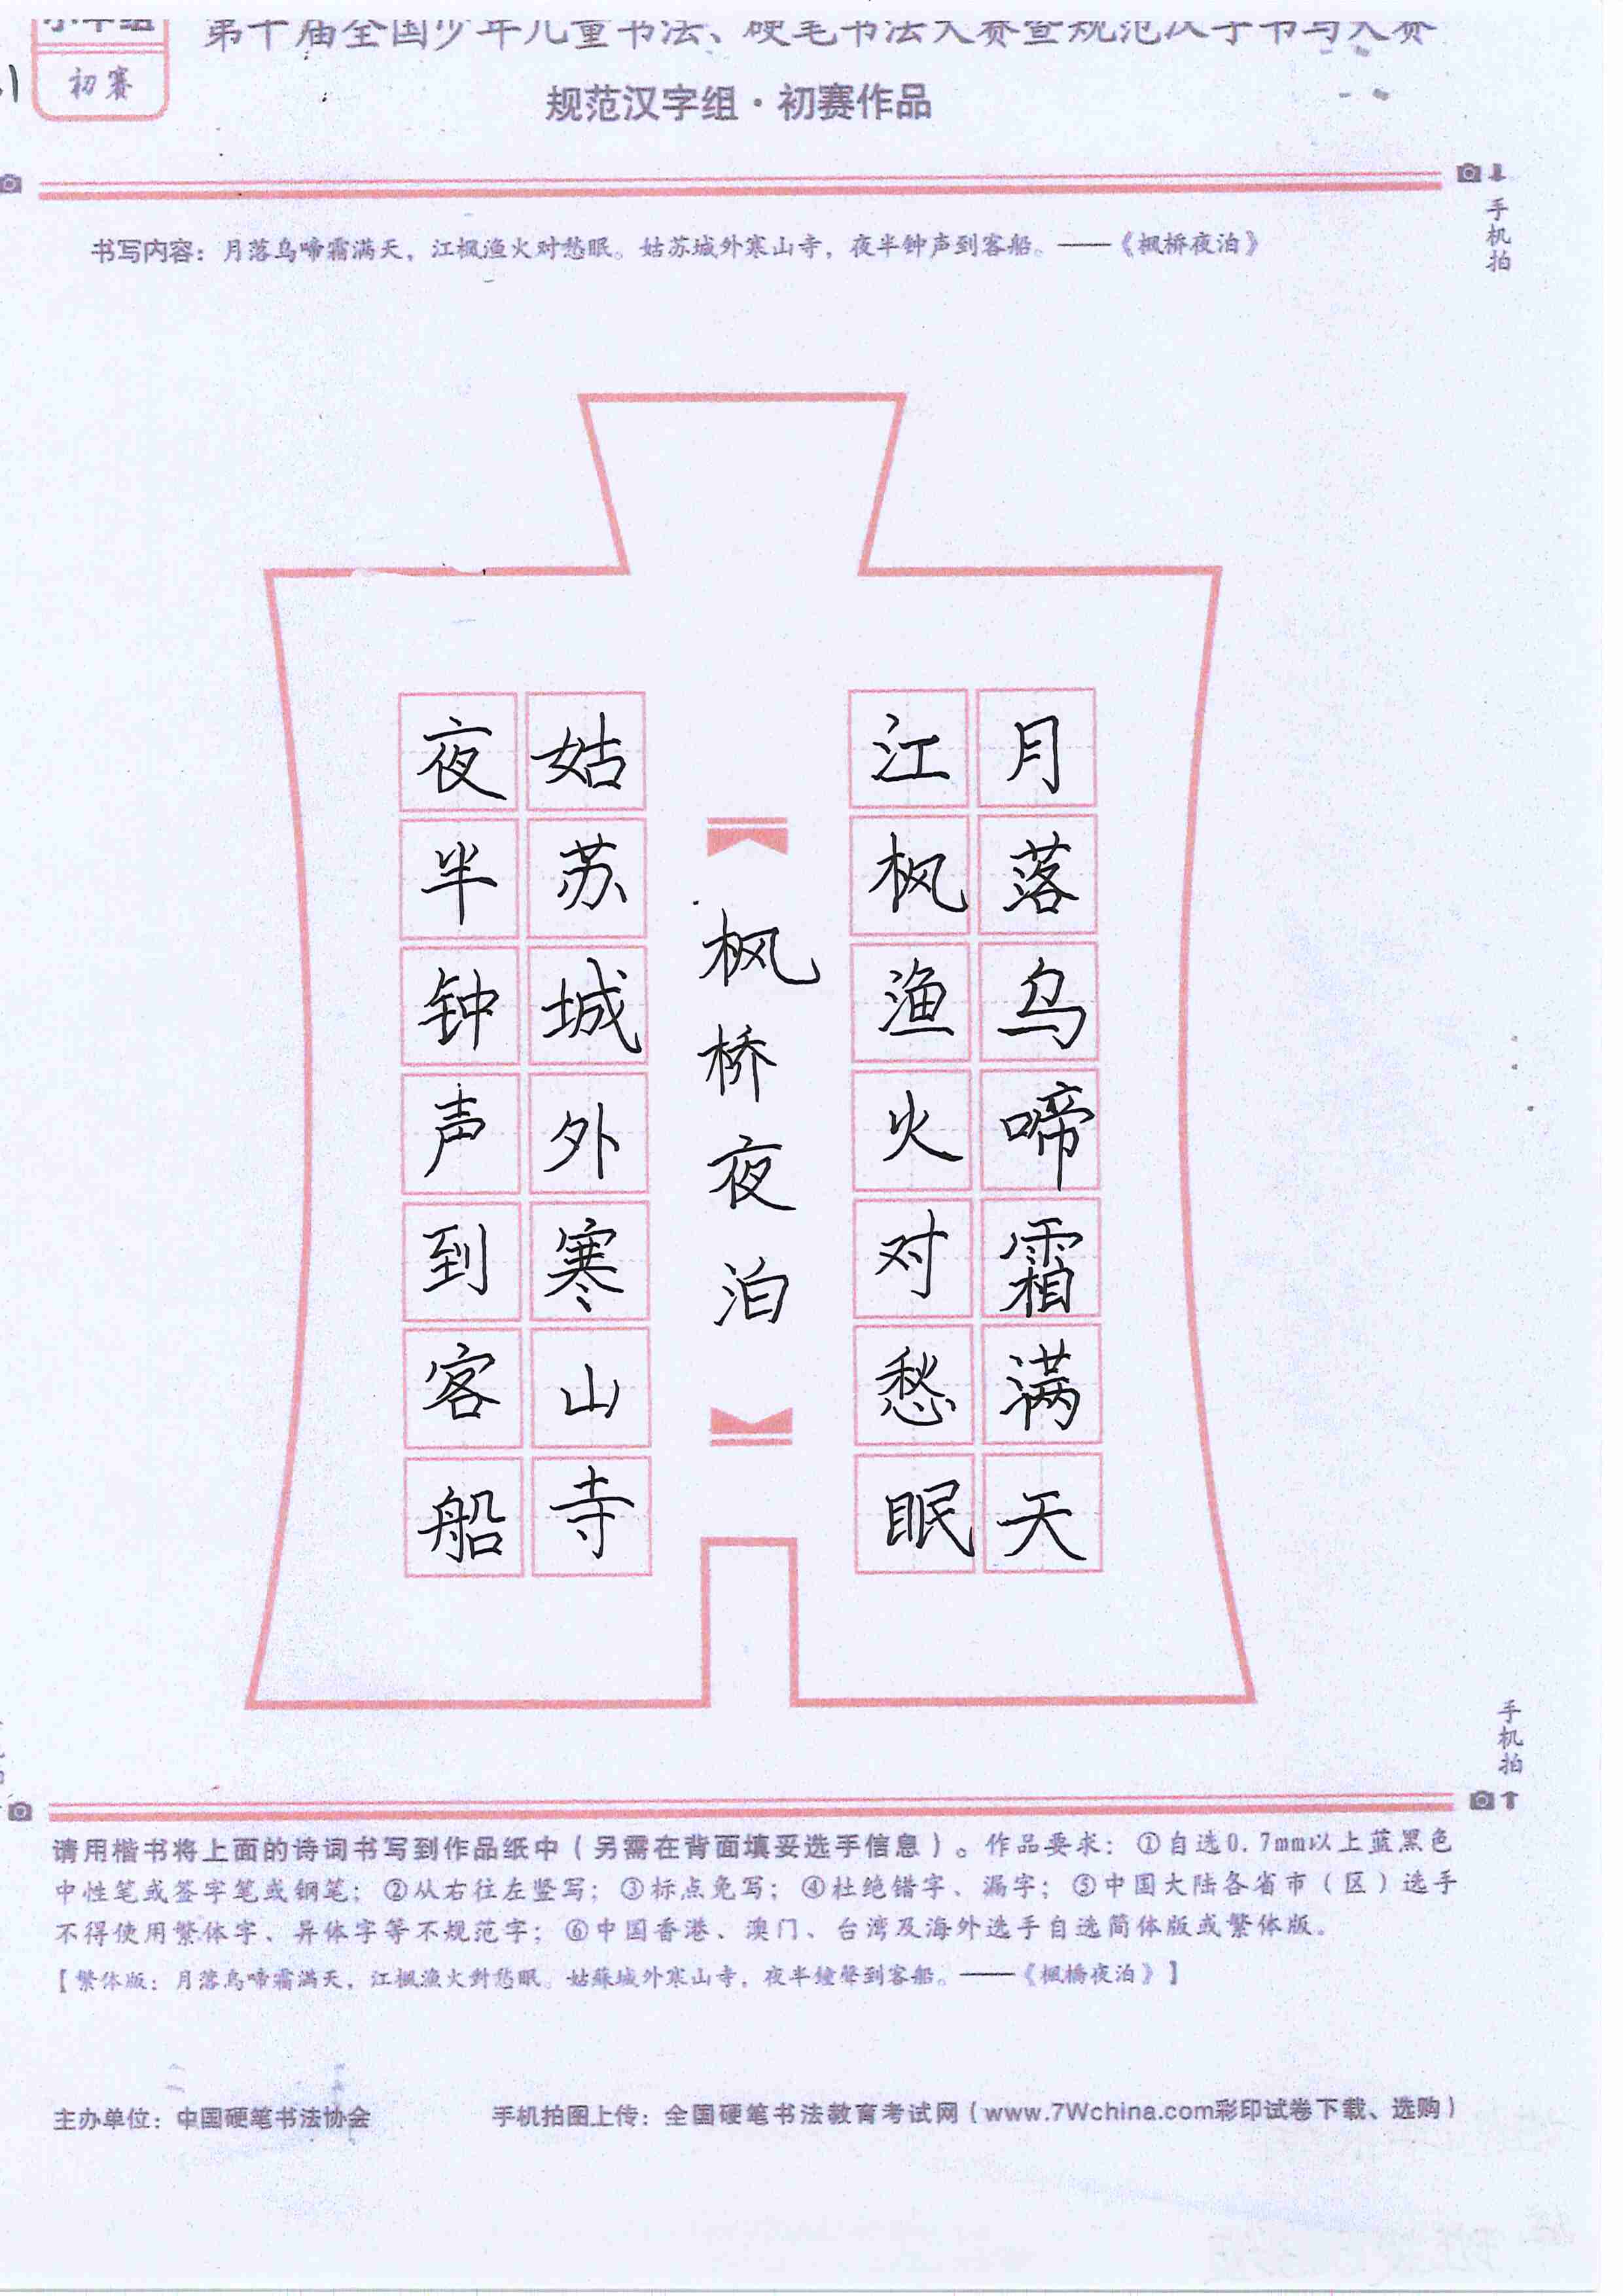 初赛
第十届全国少年儿童书法、硬笔书法大赛暨规范汉字书写大赛
规范汉字组·初赛作品
手机拍
书写内容：月落乌啼霜满天，江枫渔火对愁眠。姑苏城外寒山寺，夜半钟声到客船。——《枫桥夜泊》
月落乌啼霜满天
江枫渔火对愁眠
枫桥夜泊
姑苏城外寒山寺
夜半钟声到客船
手机拍
请用楷书将上面的诗词书写到作品纸中（另需在背面填妥选手信息）。作品要求：①自选0.7mm以上蓝黑色
中性笔或签字笔或钢笔；②从右往左竖写；③标点免写；④杜绝错字、漏字；⑤中国大陆各省市（区）选手
不得使用繁体字、异体字等不规范字；⑥中国香港、澳门、台湾及海外选手自选简体版或繁体版。
【繁体版：月落烏啼霜滿天，江楓漁火對愁眠。姑蘇城外寒山寺，夜半鐘聲到客船。——《楓橋夜泊》】
主办单位：中国硬笔书法协会
手机拍图上传：全国硬笔书法教育考试网（www.7Wchina.com彩印试卷下载、选购）